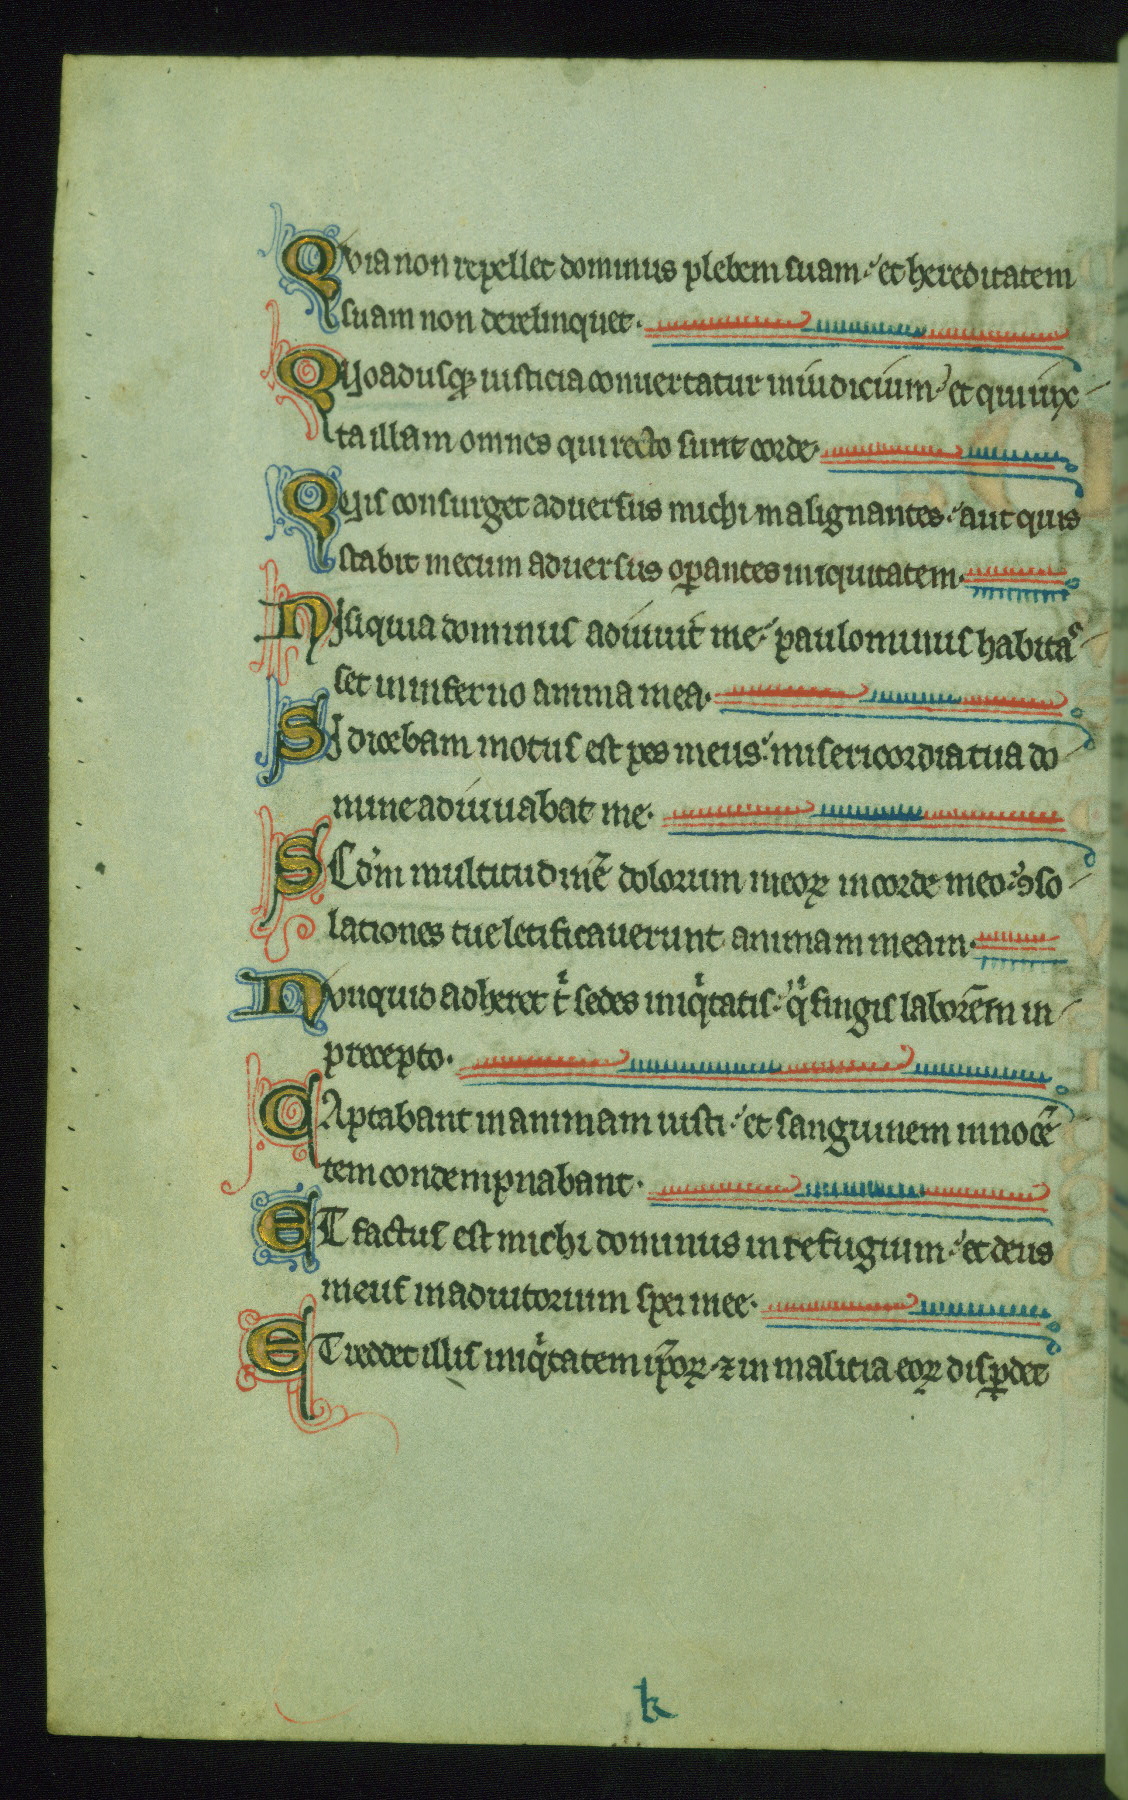 Quia non repellet dominus plebem suam· et hereditatem
suam non derelinquet·
Quoadusqꝫ iusticia conuertatur in iudicium· et qui iux
ta illam omnes qui recto sunt corde·
Quis consurget aduersus michi malignantes· aut quis
stabit mecum aduersus oꝑantes iniquitatem·
Nisi quia dominus adiuuit me· paulominus habitas
set in inferno anima mea·
Si dicebam motus est pes meus· misericordia tua do
mine adiuuabat me·
Scd'm multitudinē dolorum meoꝝ in corde meo· ꝯso
lationes tue letificauerunt animam meam·
Nunquid adheret tⁱ sedes iniqⁱtatis· qⁱ fingis laborēm in
precepto·
Captabant in animam iusti· et sanguinem innocē
tem condempnabant·
Et factus est michi dominus in refugium· et deus
meus in adiutorium spei mee·
Et reddet illis iniqⁱtatem ip̄oꝝ· ⁊ in malicia eoꝝ disꝑdet
k